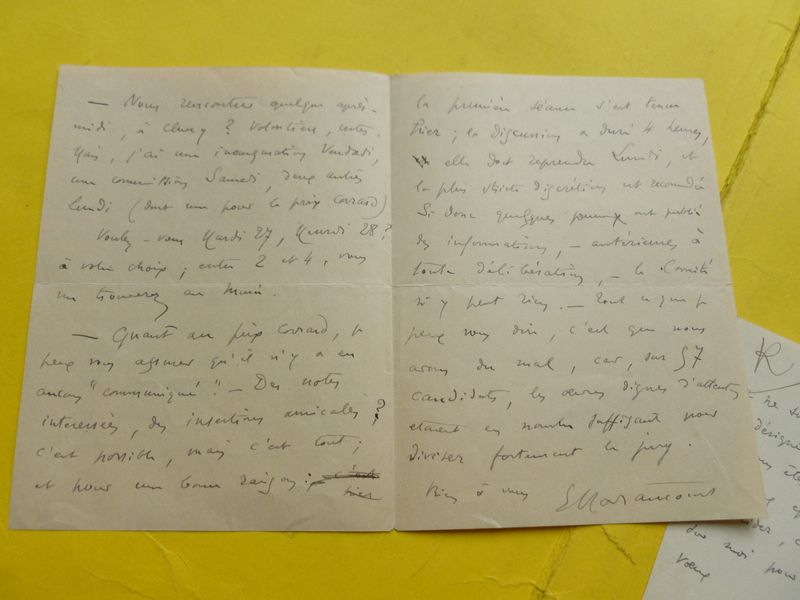 — Nous rencontrer quelque après-
midi, à Cluny ? Volontiers, certes.
Mais, j'ai une inauguration Vendredi,
une commission Samedi, deux autres
Lundi (dont une pour le prix Corrard)
Voulez-vous Mardi 27, Mercredi 28 ?
à votre choix ; entre 2 et 4, vous
me trouverez au Musée.
— Quant au prix Corrard, je
peux vous assurer qu'il n'y a eu
aucun "communiqué" ! — Des notes
intéressées, des insertions amicales ?
c'est possible, mais c'est tout ;
et pour une bonne raison :
hier
la première séance s'est tenue
hier ; la discussion a duré 4 heures,
elle doit reprendre Lundi, et
la plus stricte discrétion est recommandée
Si donc quelques journaux ont publié
des informations, — antérieures à
toute délibération, — le Comité
n'y peut rien. — Tout ce que je
peux vous dire, c'est que nous
avons du mal, car, sur 57
candidats, les œuvres dignes d'attention
étaient en nombre suffisant pour
diviser fortement le jury.
Bien à vous
E Haraucourt
R
ne
désigné
moi pour
vœux